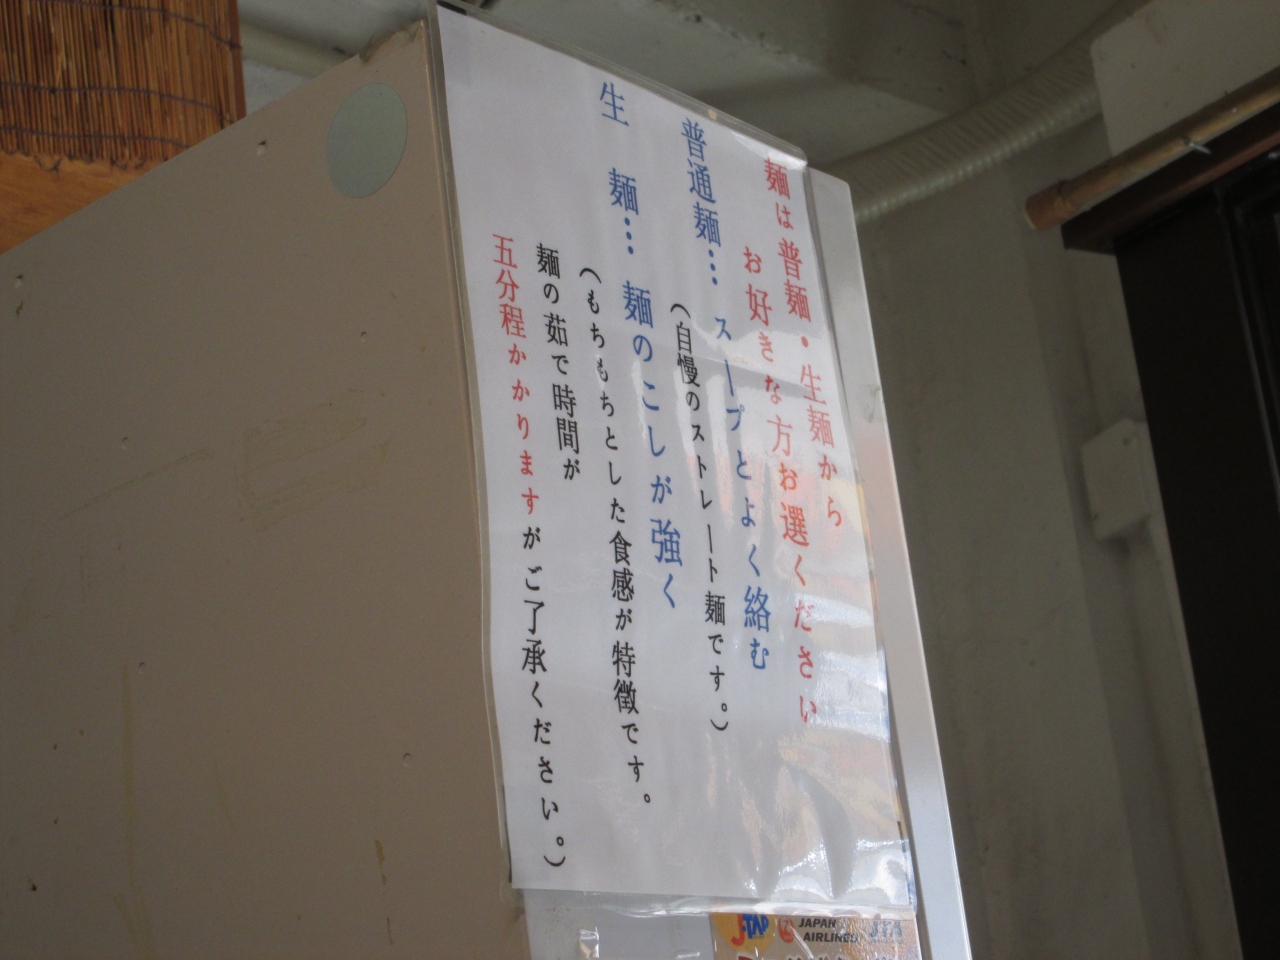 麺は普麺・生麺から
お好きな方お選ください
普通麺… スープとよく絡む
（自慢のストレート麺です。）
生 麺… 麺のこしが強く
（もちもちとした食感が特徴です。
麺の茹で時間が
五分程かかりますがご了承ください。）
J-TAP
JAPAN AIRLINES
JTA